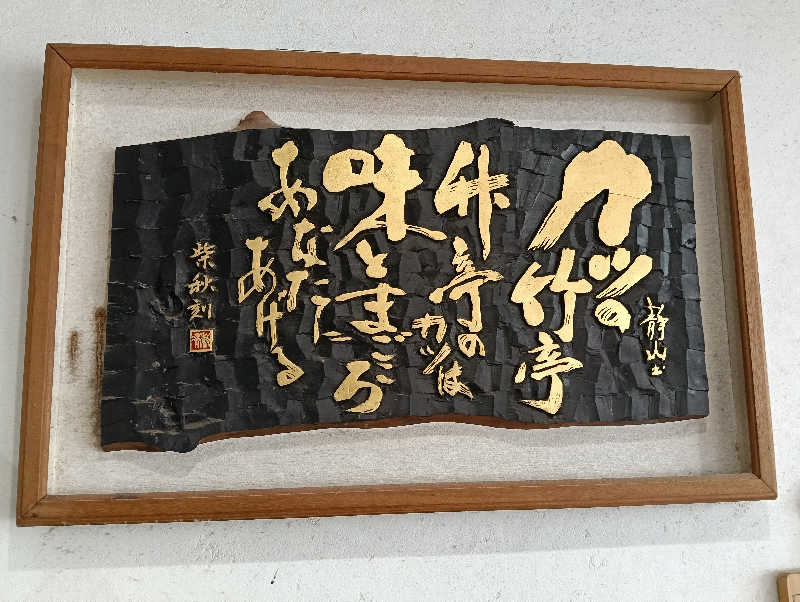 静山书
カツの
竹亭
竹亭の
カツは
味とまごころ
あなたに
あげる
柴秋刻